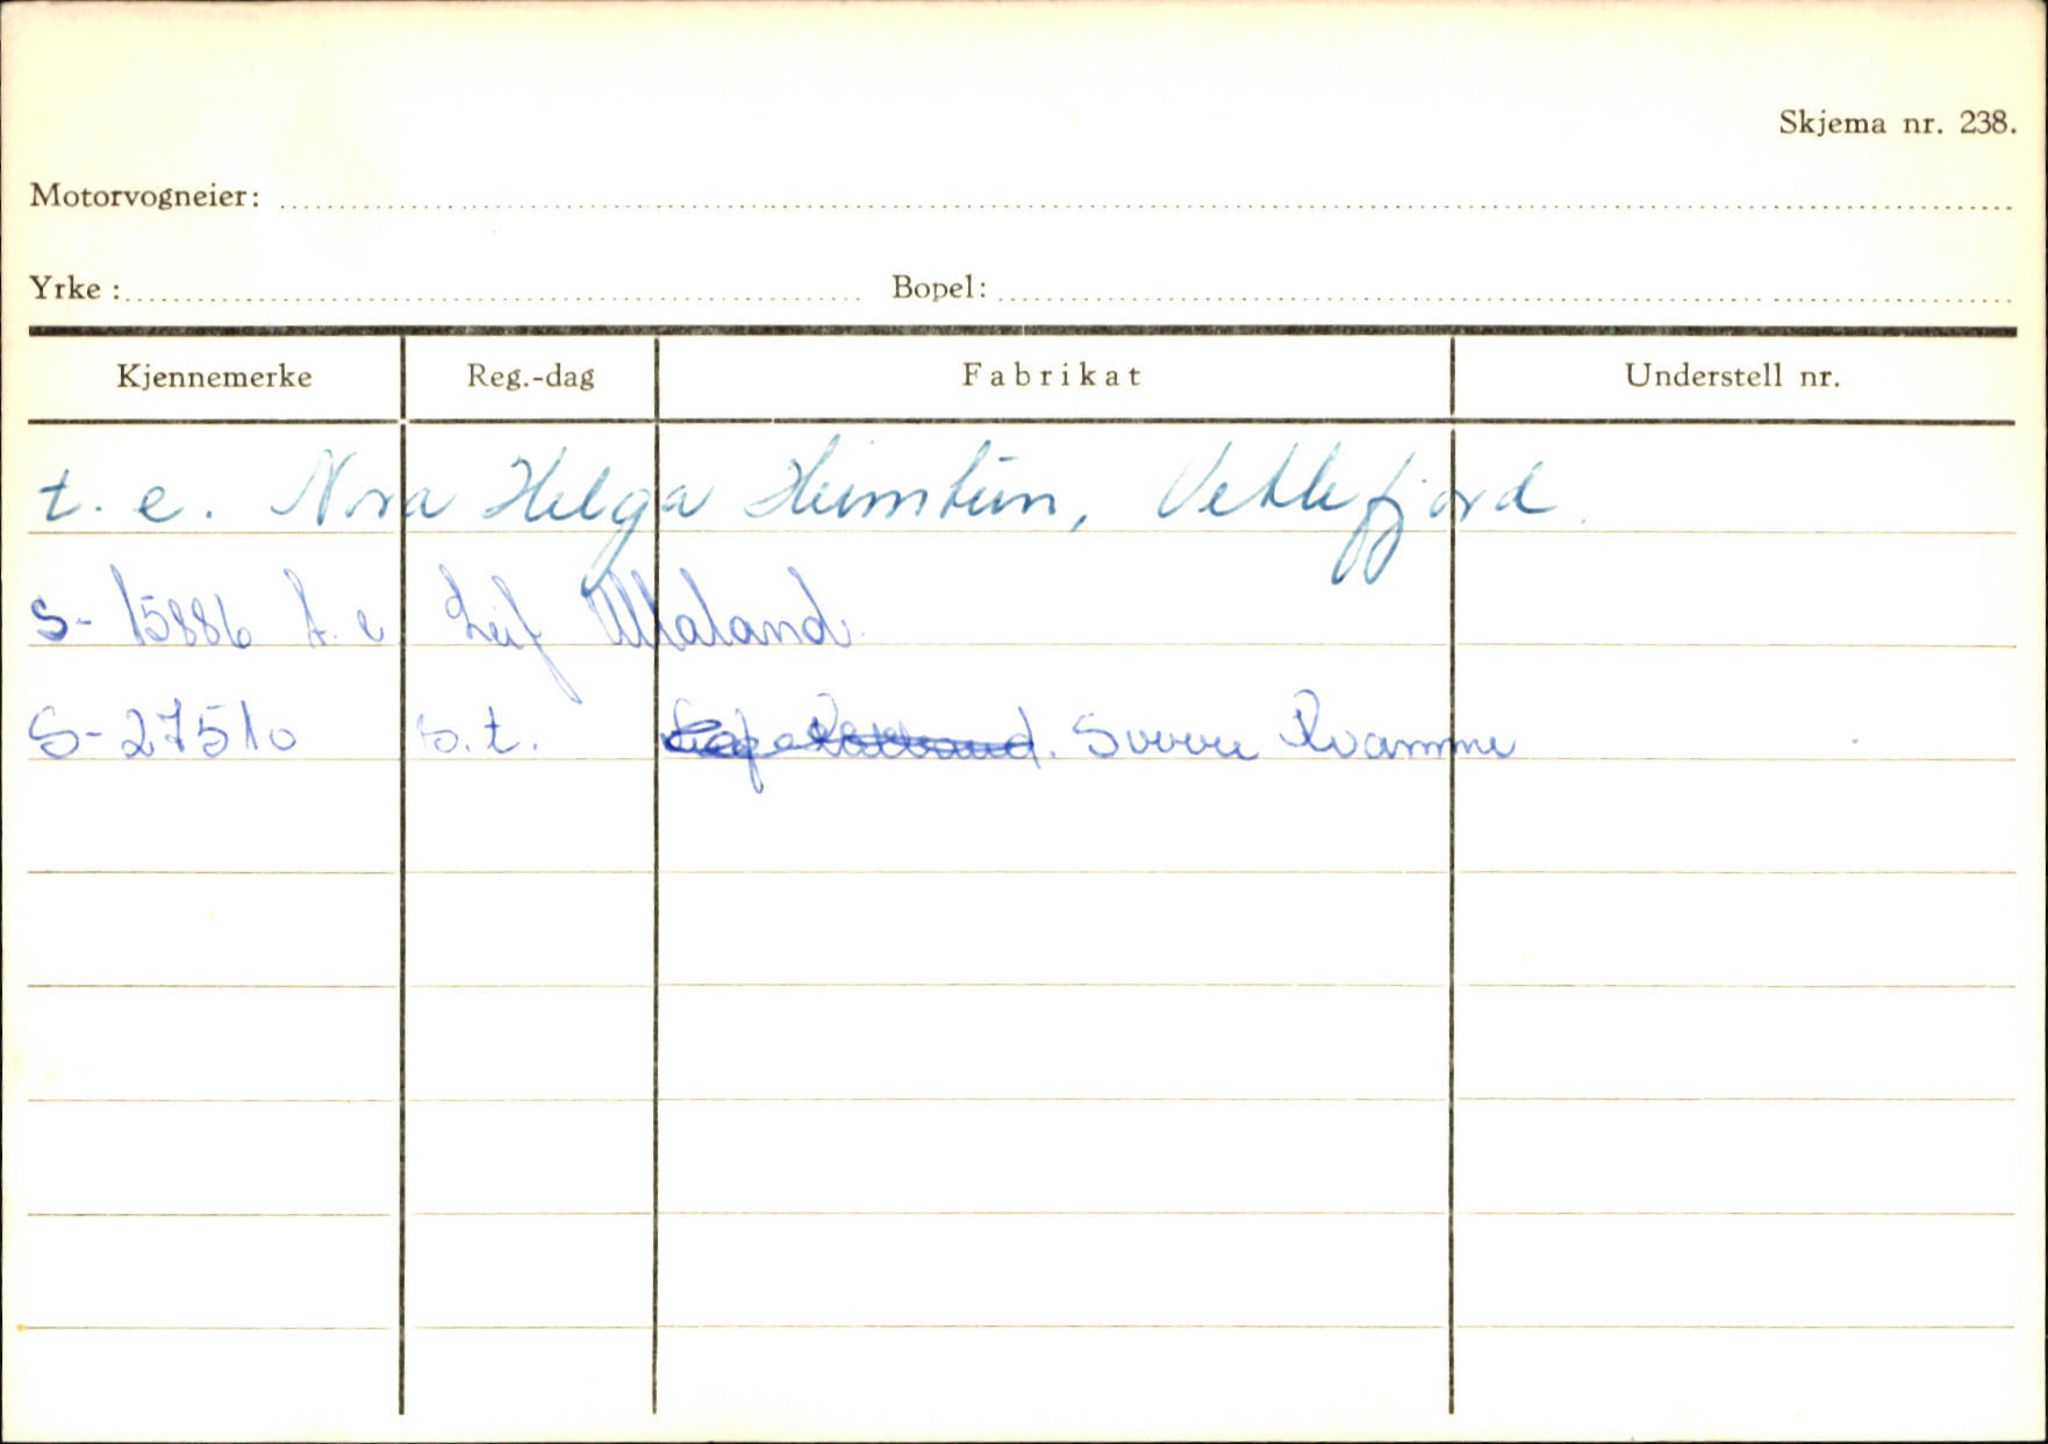 Skjema nr. 238.
Motorvogneier:
Yrke : Bopel:
Kjennemerke Reg.-dag Fabrikat Understell nr.
t. e. Nora Helga Heimtun, Vetlefjord.
S- 15886 t. e Leif Maland.
S-27510 s.t. Sverre Kvamme